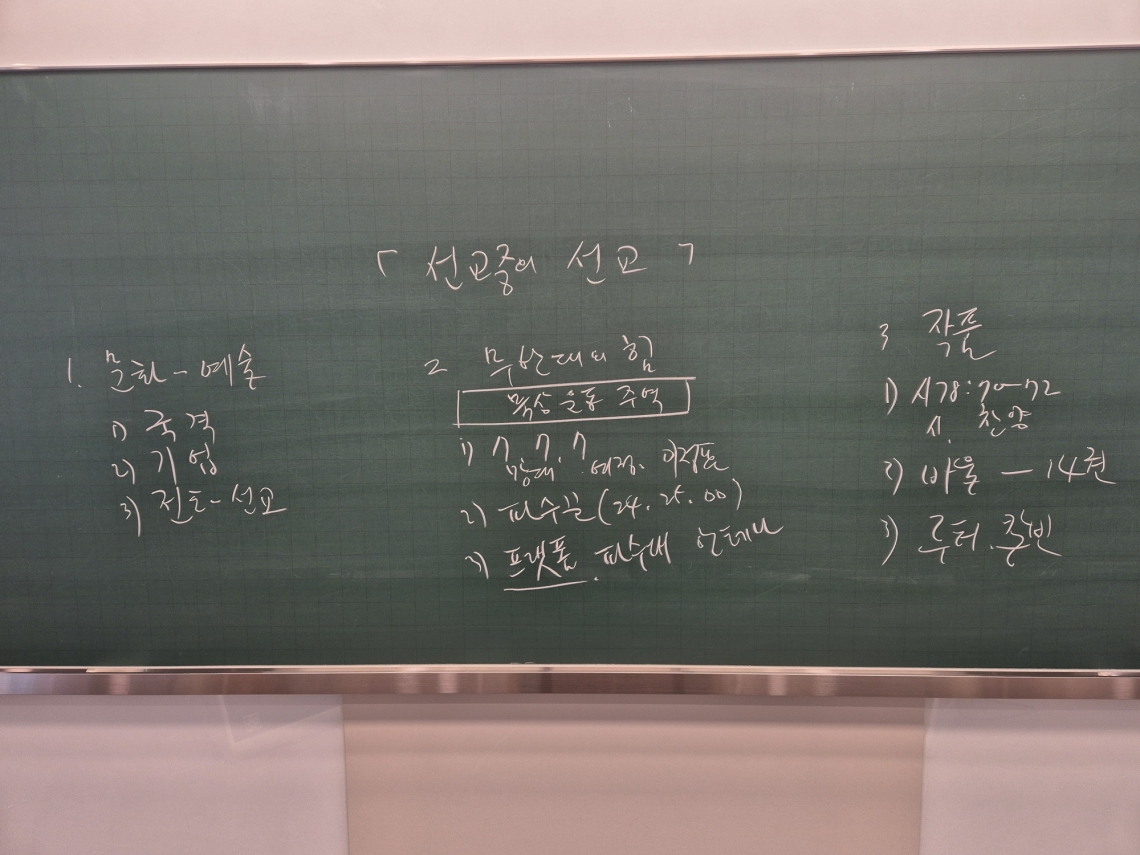 「 선교중의 선교 」
1. 문화 - 예술
1) 국격
2) 기업
3) 전도 - 선교
2 무한대의 힘
묵상 운동 추억
1) 7. 7. 7
망대. 여정. 이정표
2) 파수꾼 (24. 25. 00)
3) 프랫폼. 파수대 안테나
3 작품
1) 시78:70-72
시. 찬양
2) 바울 - 14권
3) 루터. 칼빈